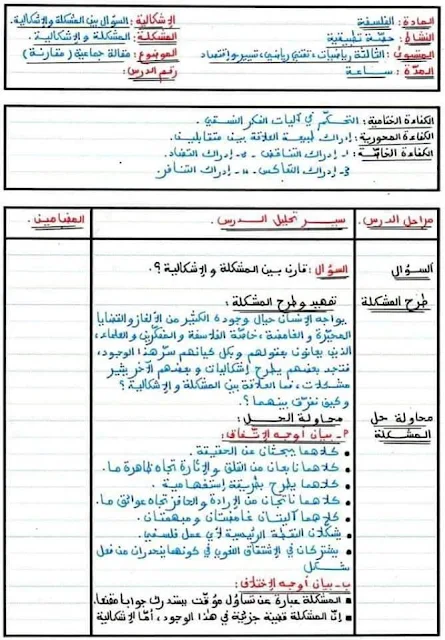 المادة: الفلسفة
الإشكالية: السؤال بين المشكلة والإشكالية.
النشاط: حصة تطبيقية
المشكلة: المشكلة والإشكالية.
المستوى: الثالثة رياضيات، تقني رياضي، تسيير وإقتصاد
الموضوع: مقالة جماعية (مقارنة)
المدّة: ساعة
رقم الدرس:
الكفاءة الختامية: التحكّم في آليات الفكر النسقي.
الكفاءة المحورية: إدراك طبيعة العلاقة بين متقابلين.
الكفاءة الخاصّة: 1- إدراك التناقض. 2- إدراك التضاد.
3- إدراك التعاكس. 4- إدراك التنافر.
مراحل الدرس.
سير تحليل الدرس.
المضامين.
السؤال
السؤال: قارن بين المشكلة والإشكالية؟.
طرح المشكلة
تمهيد وطرح المشكلة:
يواجه الإنسان حيال وجوده الكثير من الألغاز والقضايا
المحيّرة والغامضة، خاصّة الفلاسفة والمفكّرين والعلماء،
الذين يعانون بعقولهم وبكل كيانهم سرّ هذا الوجود،
فتجد بعضهم يطرح إشكاليات وبعضهم الآخر يثير
مشكلات، فما العلاقة بين المشكلة والإشكالية؟
وكيف نفرّق بينهما؟.
محاولة حل
المشكلة
محاولة الحل:
أ- بيان أوجه الإتّفاق:
كلاهما يبحثان عن الحقيقة.
كلاهما نابعان من القلق والإثارة تجاه ظاهرة ما.
كلاهما يطرح بطريقة إستفهامية.
كلاهما ناتجان من الإرادة والحافز تجاه عوائق ما.
كلاهما آليتان غامضتان ومبهمتان.
يشكلان النقطة الرئيسية لأي عمل فلسفي.
يشتركان في الإشتقاق اللغوي في كونهما ينحدران من فعل
شكل
ب- بيان أوجه الإختلاف:
المشكلة عبارة عن تساؤل مؤقّت يستدرك جوابا مقنعا.
إنّ المشكلة قضية جزئية في هذا الوجود، أمّا الإشكالية